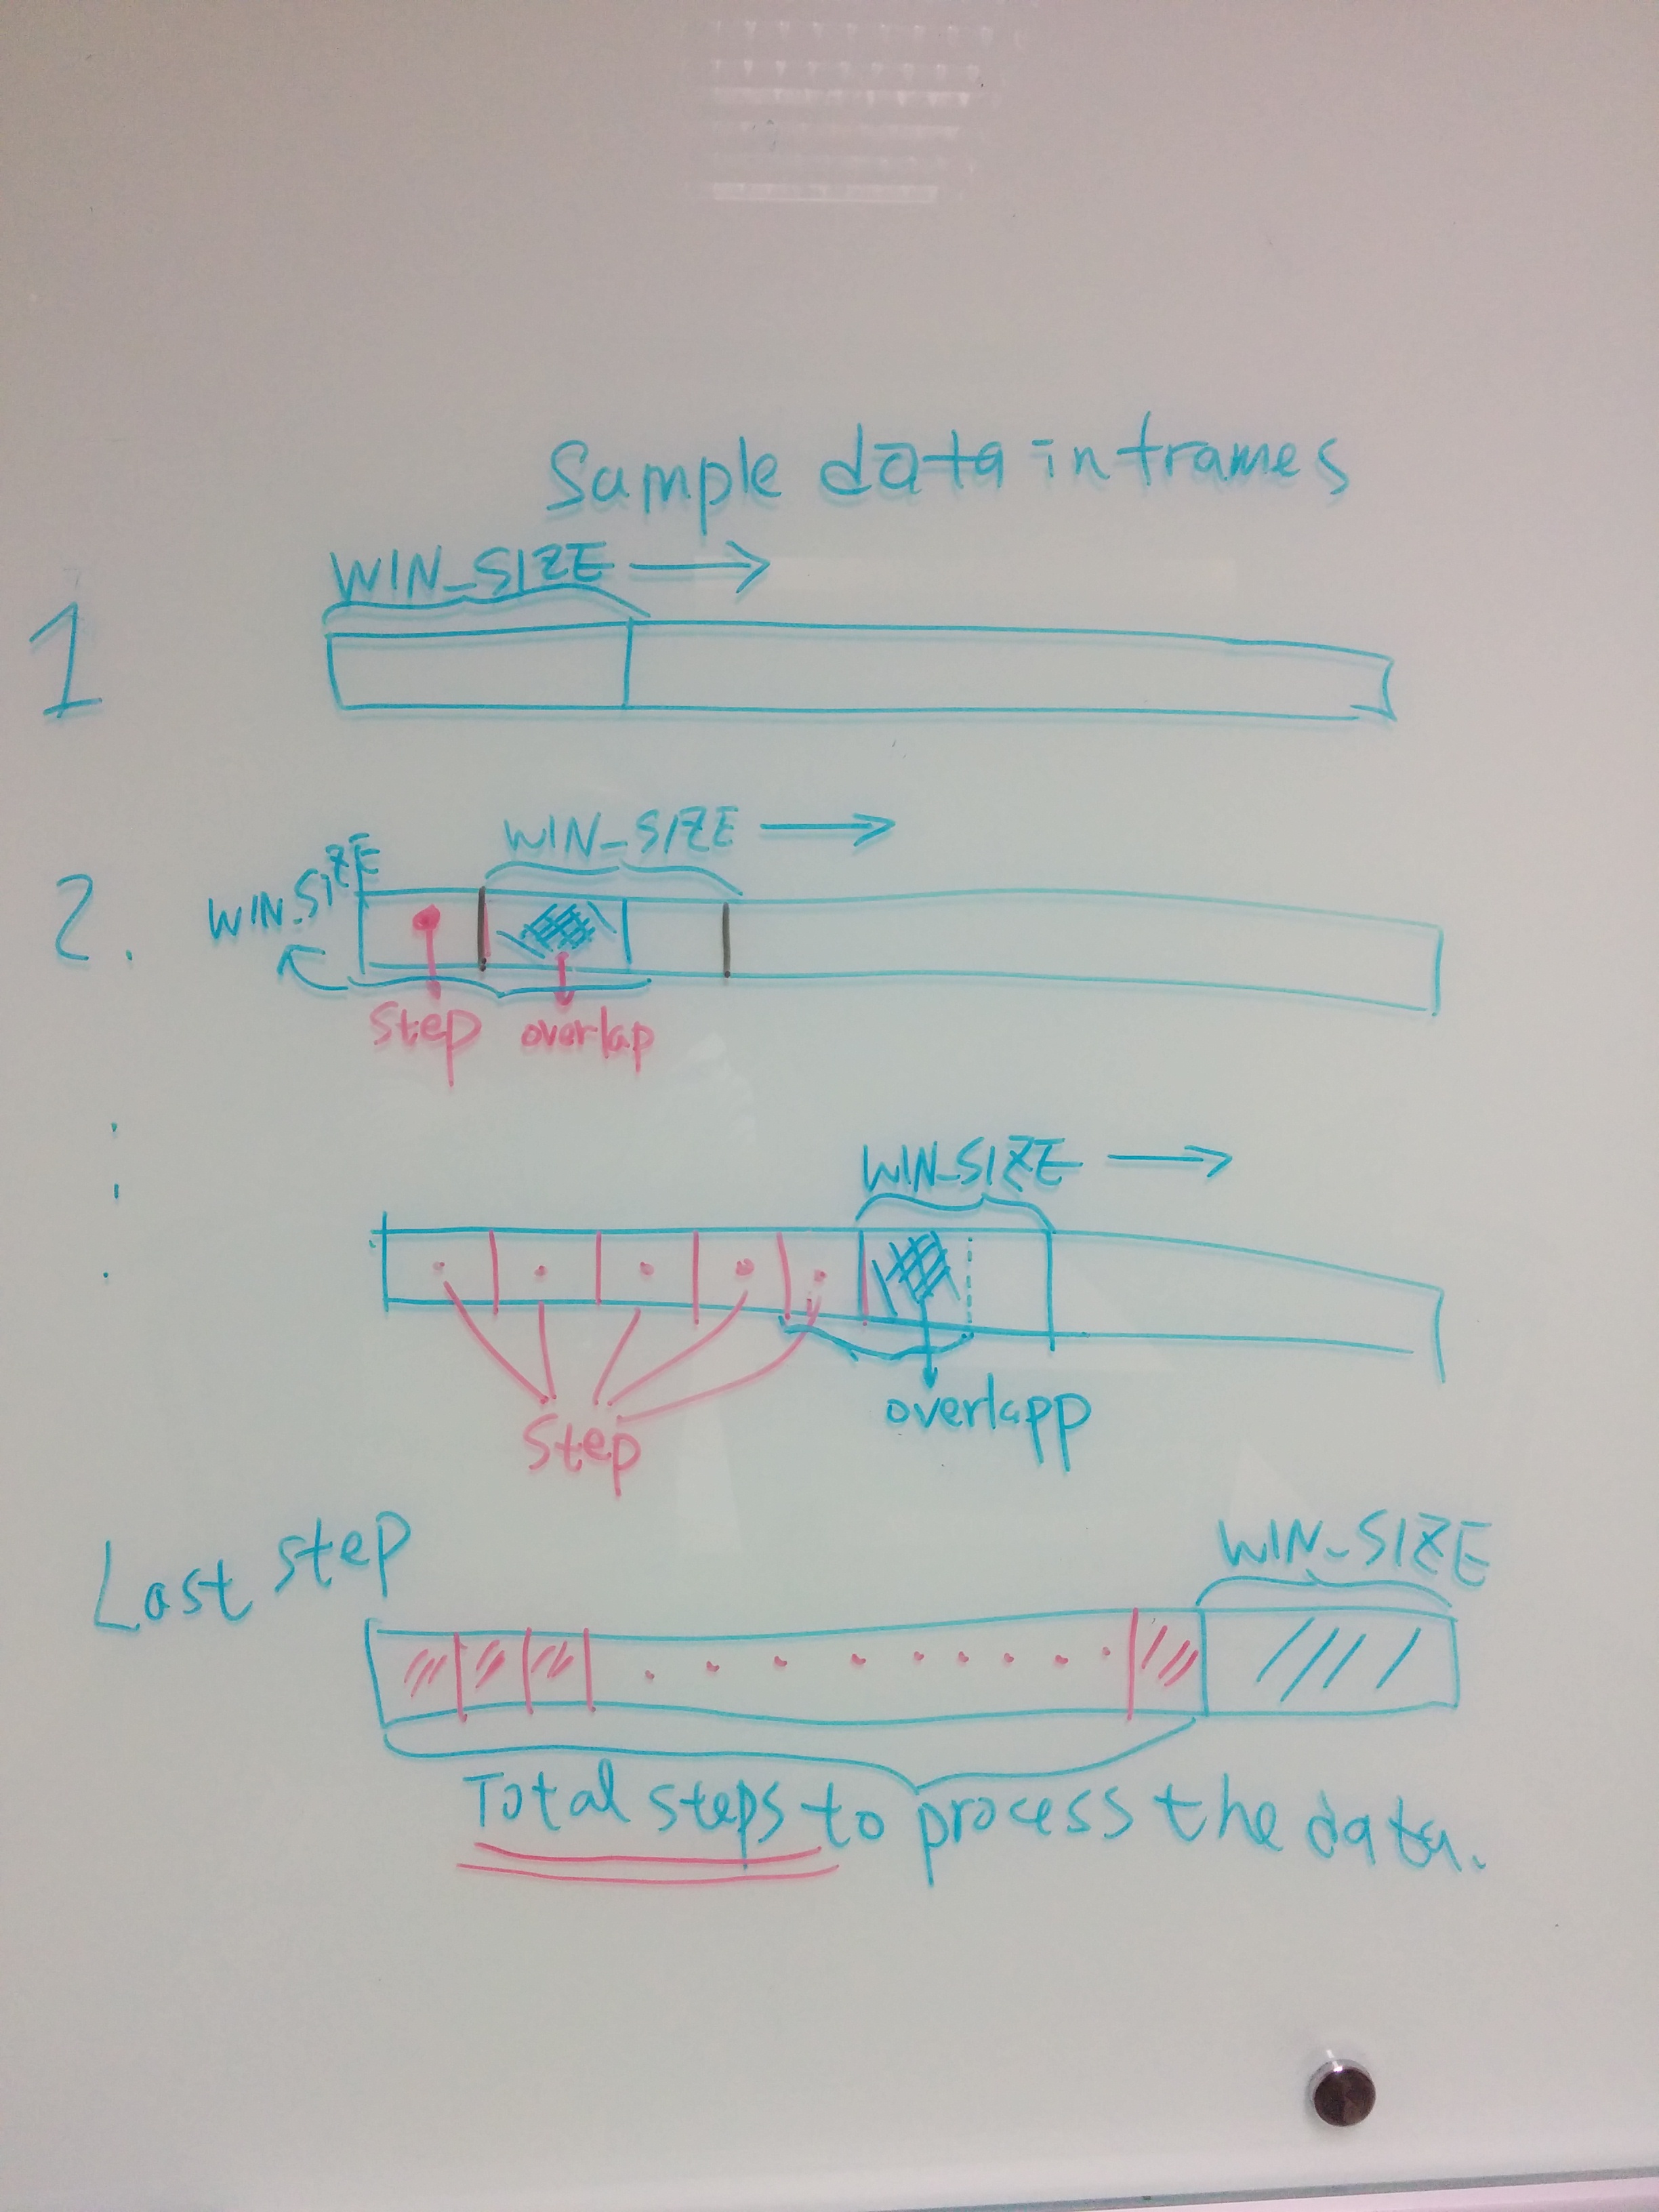 Sample data in frames
WIN_SIZE
1
WIN_SIZE
WIN_SIZE
2.
step overlap
WIN_SIZE
overlapp
Step
Last step
WIN_SIZE
Total steps to process the data.